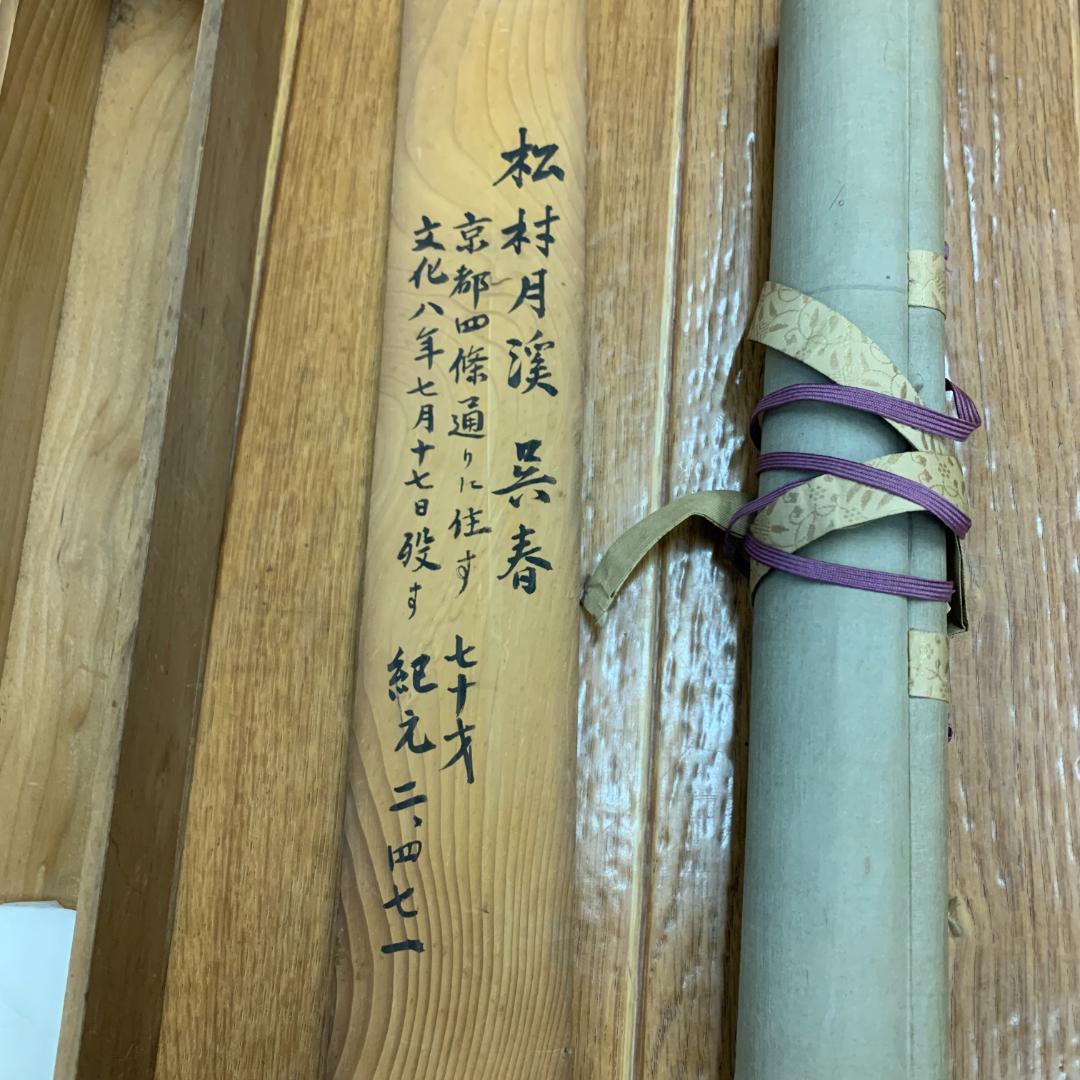 松村月溪 呉春
京都四條通りに住す 七十才
文化八年七月十七日歿す 紀元二、四七一